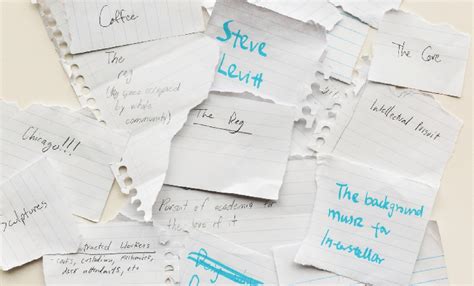 Coffee
The
reg
(a space occupied
by whole
community)
Steve
Levitt
The Core
Intellectual Pursuit
The Reg
Chicago!!!
Sculptures
Pursuit of academia for
the love of it
The background
music for
Interstellar
Contracted Workers
cooks, custodians, mechanics,
desk attendants, etc